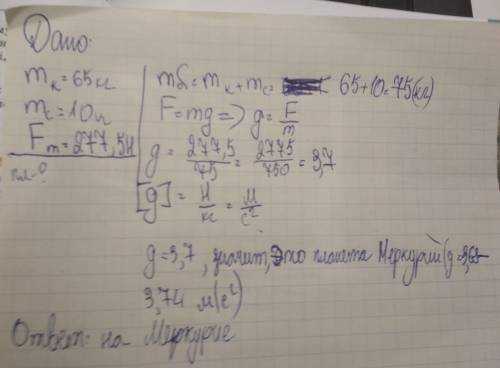 Дано:
mк = 65 кг
mс = 10 кг
Fт = 277,5 Н
пл-?
mб = mк + mс = 65+10=75(кг)
F=mg => g = F/m
g = 277,5/75 = 2775/750 = 3,7
[g] = Н/кг = м/с²
g=3,7, значит, это планета Меркурий (g=3,68-
3,74 м/с²)
Ответ: на Меркурие